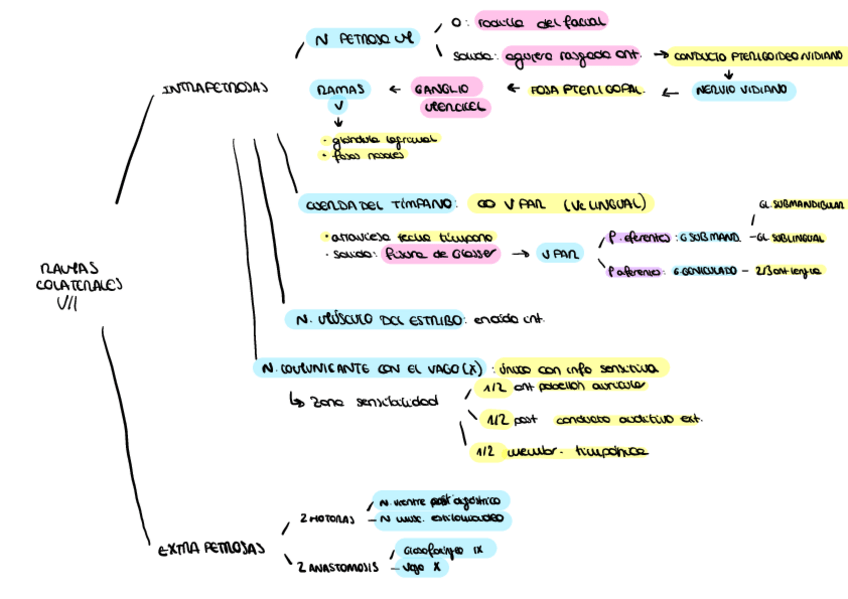 N PETROSO
O: rodilla del facial
salida: agujero rasgado ant. → CONDUCTO PTERIGOIDEO NIDIANO
INTRAPETROSAS
RAMAS V ← GANGLIO ← FOSA PTERIGOPAL. ← NERVIO VIDIANO
· glándula lagrimal
· fosas nasales
CUERDA DEL TÍMPANO: V PAR (VC LINGUAL)
GL. SUBMANDIBULAR
· atraviesa techo tímpano
P. eferentes: G SUBMAND. - GL SUBLINGUAL
· salida: fisura de Glasser → V PAR
P aferentes: G. GENICULADO - 2/3 ant lengua
RAMAS
COLATERALES
VII
N. MÚSCULO DEL ESTRIBO:
N. COMUNICANTE CON EL VAGO (X): único con info sensitiva
↳ Zona sensibilidad
1/2 ant pabellón auricular
1/2 post conducto auditivo ext.
1/2 membr. timpánica
N. vientre post digástrico
2 MOTORAS
N musc. estilohioideo
EXTRAPETROSAS
Glosofaríngeo IX
2 ANASTOMOSIS
Vago X